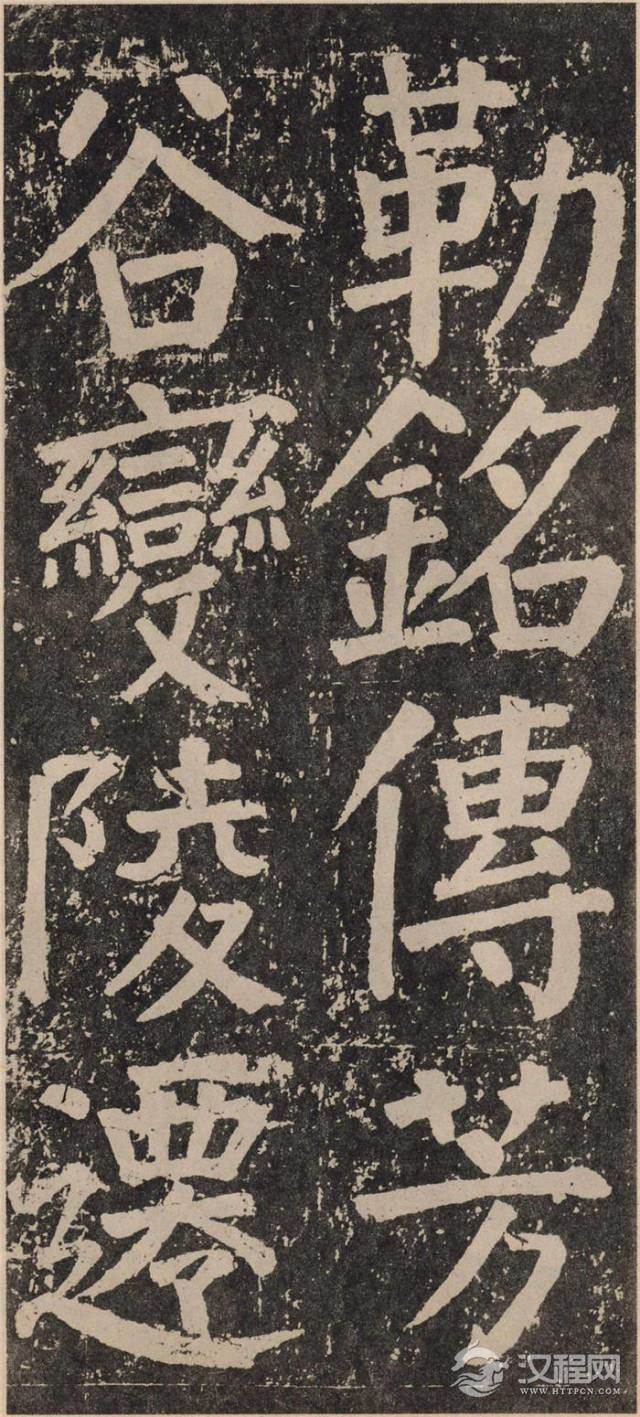 勒銘傳芳
谷變陵遷
汉程网
WWW.HTTPCN.COM